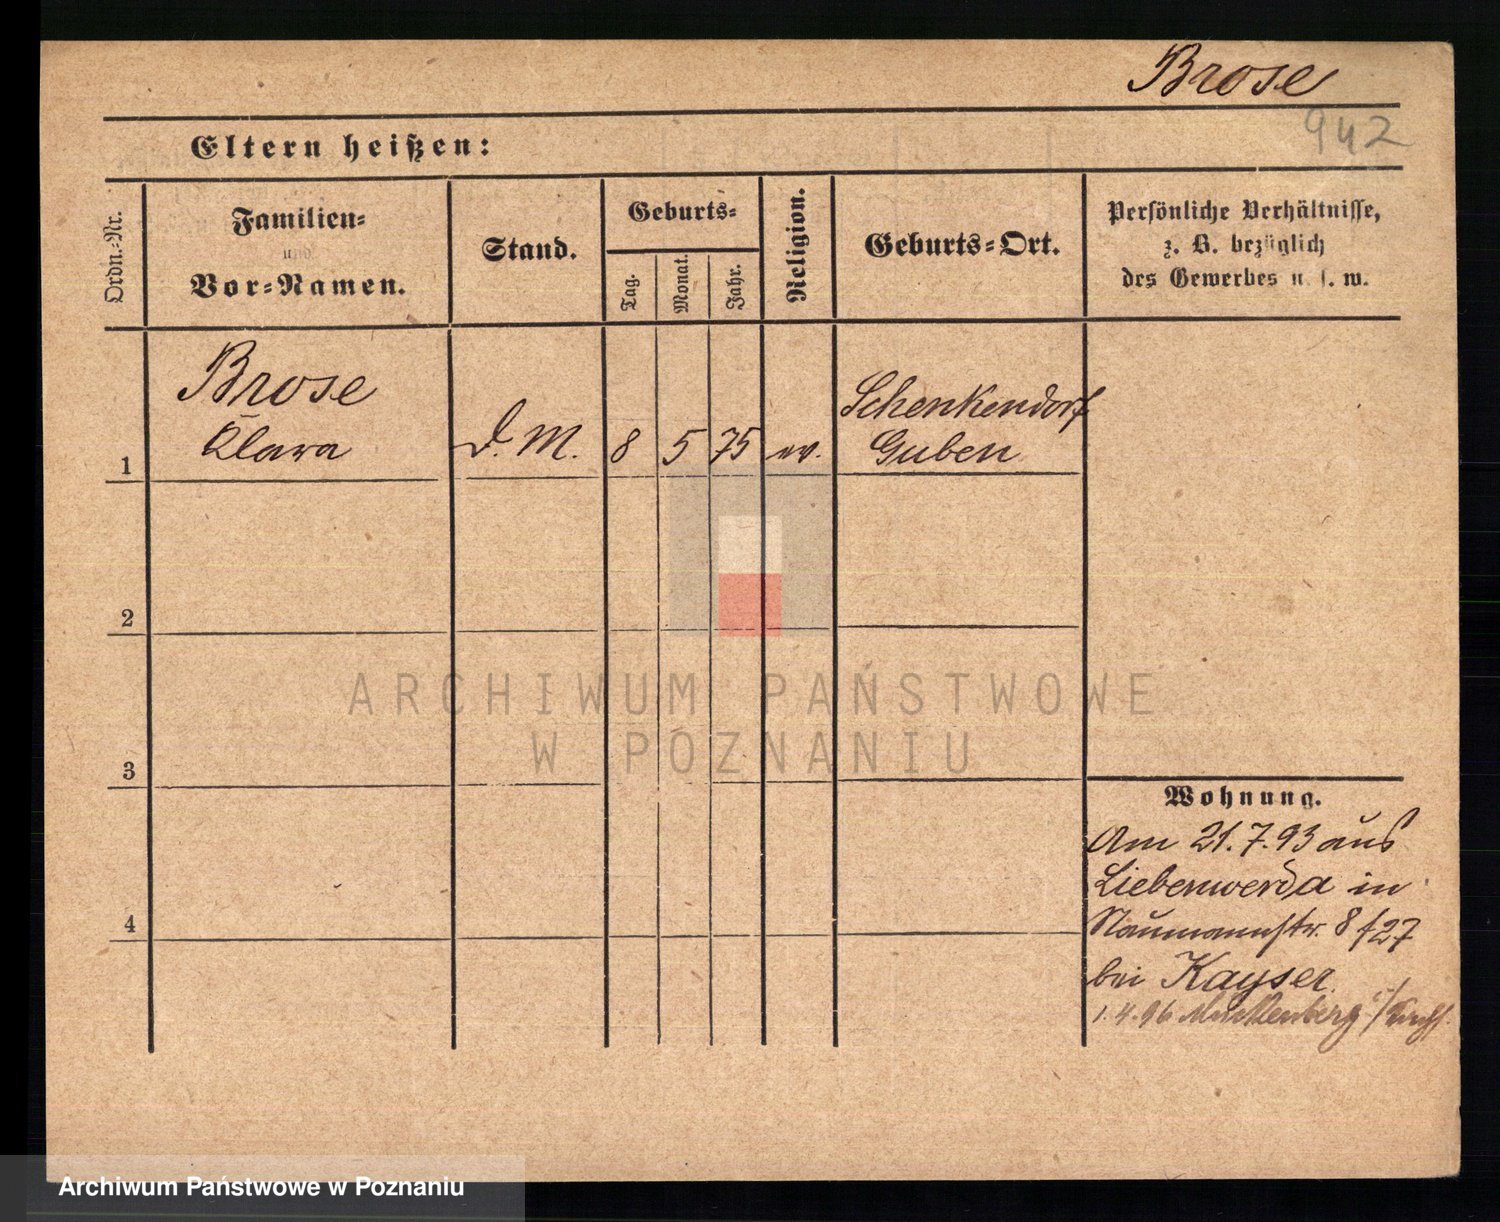 Brose
942
Eltern heißen:
Ordn.-Nr.
Familien-
und
Vor-Namen.
Stand.
Geburts-
Tag.
Monat.
Jahr.
Religion.
Geburts-Ort.
Persönliche Verhältnisse,
z. B. bezüglich
des Gewerbes u. s. w.
Brose
Klara
1
d. M.
8
5
75
ev.
Schenkendorf
Guben
2
3
4
ARCHIWUM PAŃSTWOWE
W POZNANIU
Wohnung.
Am 21.7.93 aus
Liebenwerda in
Naumannstr. 8 f 27
bei Kayser.
1.4.96
Archiwum Państwowe w Poznaniu